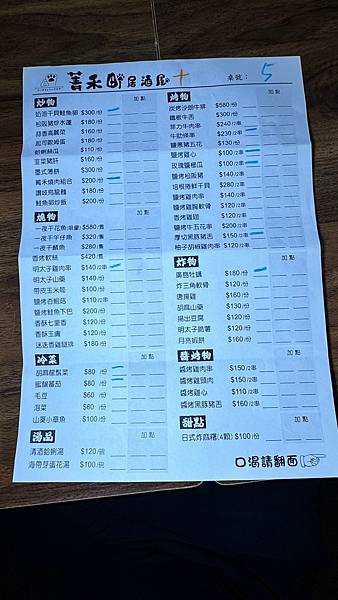 菁禾町居酒屋
桌號： 5
炒物 加點
奶油干貝鮭魚卵 $300/份
松阪豬炒水蓮 $180/份
蒜香高麗菜 $160/份
起司歐姆蛋 $180/份
蛤蜊絲瓜 $110/份
韭菜豬肝 $160/份
墨式薄餅 $300/份
菁禾燒肉組合 $200/份
讚岐烏龍麵 $180/份
鮭魚卵炒飯 $200/份
燒物 加點
一夜干花魚(限量) $580/隻
一夜干午仔魚 $320/隻
一夜干鯖魚 $280/隻
香烤軟絲 $420/隻
明太子雞肉串 $140/2串
明太子山藥 $140/份
帶皮玉米筍 $100/份
鹽烤杏鮑菇 $110/2串
鹽烤鮭魚下巴 $200/份
香酥七里香 $120/份
香酥玉膚 $120/份
迷迭香雞腿排 $180/份
冷菜 加點
胡麻龍鬚菜 $80 /份
蜜釀蕃茄 $80 /份
毛豆 $60 /份
泡菜 $60 /份
山葵小章魚 $100/份
湯品 加點
清酒蛤蜊湯 $120/碗
海帶芽蛋花湯 $100/碗
烤物 加點
炭烤沙朗牛排 $580/份
鐵板牛舌 $300/份
菲力牛肉串 $240/2串
牛肋條串 $230/2串
鹽蔥豬五花 $130/份
鹽烤雞心 $100/2串
玫瑰鹽櫛瓜 $100/2串
鹽烤松阪豬 $140/2串
培根捲鮮干貝 $280/2串
鹽烤雞肉串 $140/2串
鹽烤雞胸軟骨 $120/2串
香烤雞翅 $120/2串
鹽烤牛五花串 $200/2串
厚切黑豚豬舌 $150/2串
柚子胡椒雞肉串 $120/2串
炸物 加點
廣島牡蠣 $180/份
炸三角軟骨 $120/份
唐揚雞 $160/份
胡麻山藥 $130/份
揚出豆腐 $120/份
明太子脆薯 $120/份
月亮蝦餅 $160/份
醬烤物 加點
醬烤雞肉串 $150/2串
醬烤雞頸肉 $150/2串
醬烤雞心 $110/2串
醬烤黑豚豬舌 $160/2串
甜點 加點
日式炸麻糬(4顆) $100/份
口渴請翻面